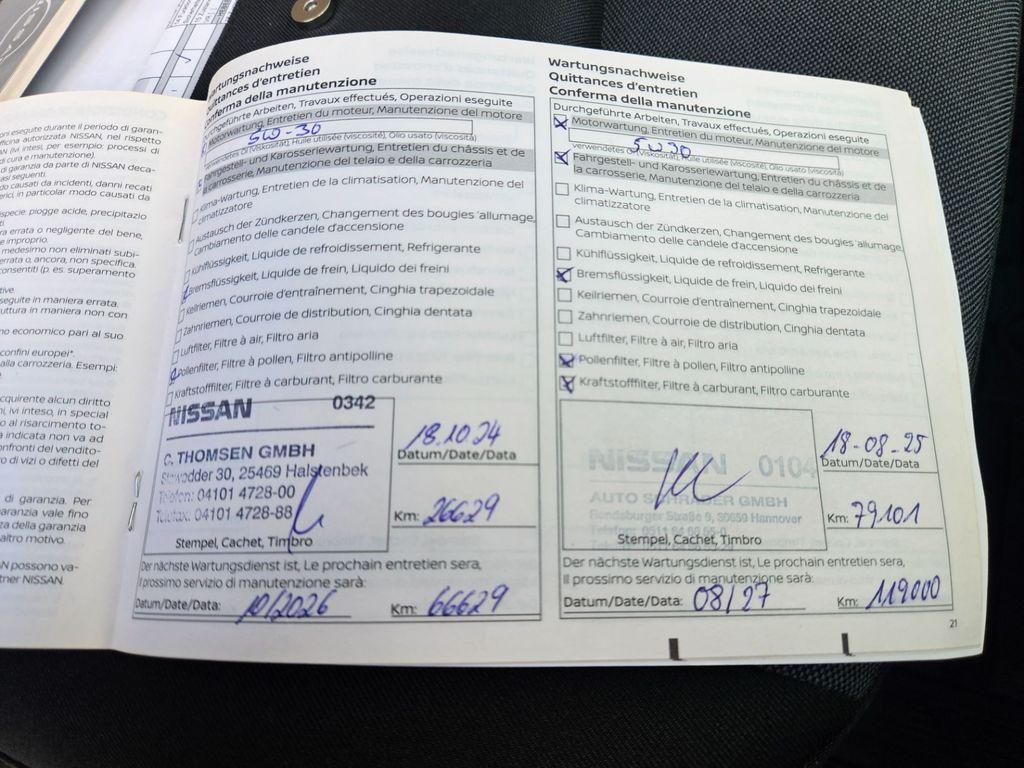 oni eseguite durante il periodo di garan-
officina autorizzata NISSAN, nel rispetto
AN (ivi intesi, per esempio: processi di
di cura e manutenzione).
di garanzia da parte di NISSAN deca-
asi seguenti.
do causati da incidenti, danni recati
erici, in particolar modo causati da
specie: piogge acide, precipitazio
ti
ra errata o negligente del bene,
e improprio.
medesimo non eliminati subi-
errata o, ancora, non specifica.
consentiti (p. es. superamento
tive.
seguite in maniera errata.
uttura in maniera non con
no economico pari al suo
confini europei*.
alla carrozzeria. Esempi:
acquirente alcun diritto
i, ivi inteso, in special
o al risarcimento to-
a indicata non va ad
onfronti del vendito-
o di vizi o difetti del
di garanzia. Per
aranzia vale fino
za della garanzia
altro motivo.
N possono va-
tner NISSAN.
Wartungsnachweise
Quittances d'entretien
Conferma della manutenzione
Durchgeführte Arbeiten, Travaux effectués, Operazioni eseguite
Motorwartung, Entretien du moteur, Manutenzione del motore
5W-30
verwendetes Öl (Viskosität), Huile utilisée (viscosité), Olio usato (viscosità)
Fahrgestell- und Karosseriewartung, Entretien du châssis et de
la carrosserie, Manutenzione del telaio e della carrozzeria
Klima-Wartung, Entretien de la climatisation, Manutenzione del
climatizzatore
Austausch der Zündkerzen, Changement des bougies 'allumage,
Cambiamento delle candele d'accensione
Kühlflüssigkeit, Liquide de refroidissement, Refrigerante
Bremsflüssigkeit, Liquide de frein, Liquido dei freini
Keilriemen, Courroie d'entraînement, Cinghia trapezoidale
Zahnriemen, Courroie de distribution, Cinghia dentata
Luftfilter, Filtre à air, Filtro aria
Pollenfilter, Filtre à pollen, Filtro antipolline
Kraftstofffilter, Filtre à carburant, Filtro carburante
NISSAN 0342
C. THOMSEN GMBH
25469 Halstenbek
Telefon: 04101 4728-00
Telefax: 04101 4728-88
Stempel, Cachet, Timbro
18.10.24
Datum/Date/Data
Km: 26629
Der nächste Wartungsdienst ist, Le prochain entretien sera,
Il prossimo servizio di manutenzione sarà:
Datum/Date/Data: 10/2026 Km: 66629
Wartungsnachweise
Quittances d'entretien
Conferma della manutenzione
Durchgeführte Arbeiten, Travaux effectués, Operazioni eseguite
Motorwartung, Entretien du moteur, Manutenzione del motore
5W30
verwendetes Öl (Viskosität), Huile utilisée (viscosité), Olio usato (viscosità)
Fahrgestell- und Karosseriewartung, Entretien du châssis et de
la carrosserie, Manutenzione del telaio e della carrozzeria
Klima-Wartung, Entretien de la climatisation, Manutenzione del
climatizzatore
Austausch der Zündkerzen, Changement des bougies 'allumage,
Cambiamento delle candele d'accensione
Kühlflüssigkeit, Liquide de refroidissement, Refrigerante
Bremsflüssigkeit, Liquide de frein, Liquido dei freini
Keilriemen, Courroie d'entraînement, Cinghia trapezoidale
Zahnriemen, Courroie de distribution, Cinghia dentata
Luftfilter, Filtre à air, Filtro aria
Pollenfilter, Filtre à pollen, Filtro antipolline
Kraftstofffilter, Filtre à carburant, Filtro carburante
NISSAN 0104
AUTO SCHRADER GMBH
Hannover
Stempel, Cachet, Timbro
18-08-25
Datum/Date/Data
Km: 79101
Der nächste Wartungsdienst ist, Le prochain entretien sera,
Il prossimo servizio di manutenzione sarà:
Datum/Date/Data: 08/27 Km: 119000
21